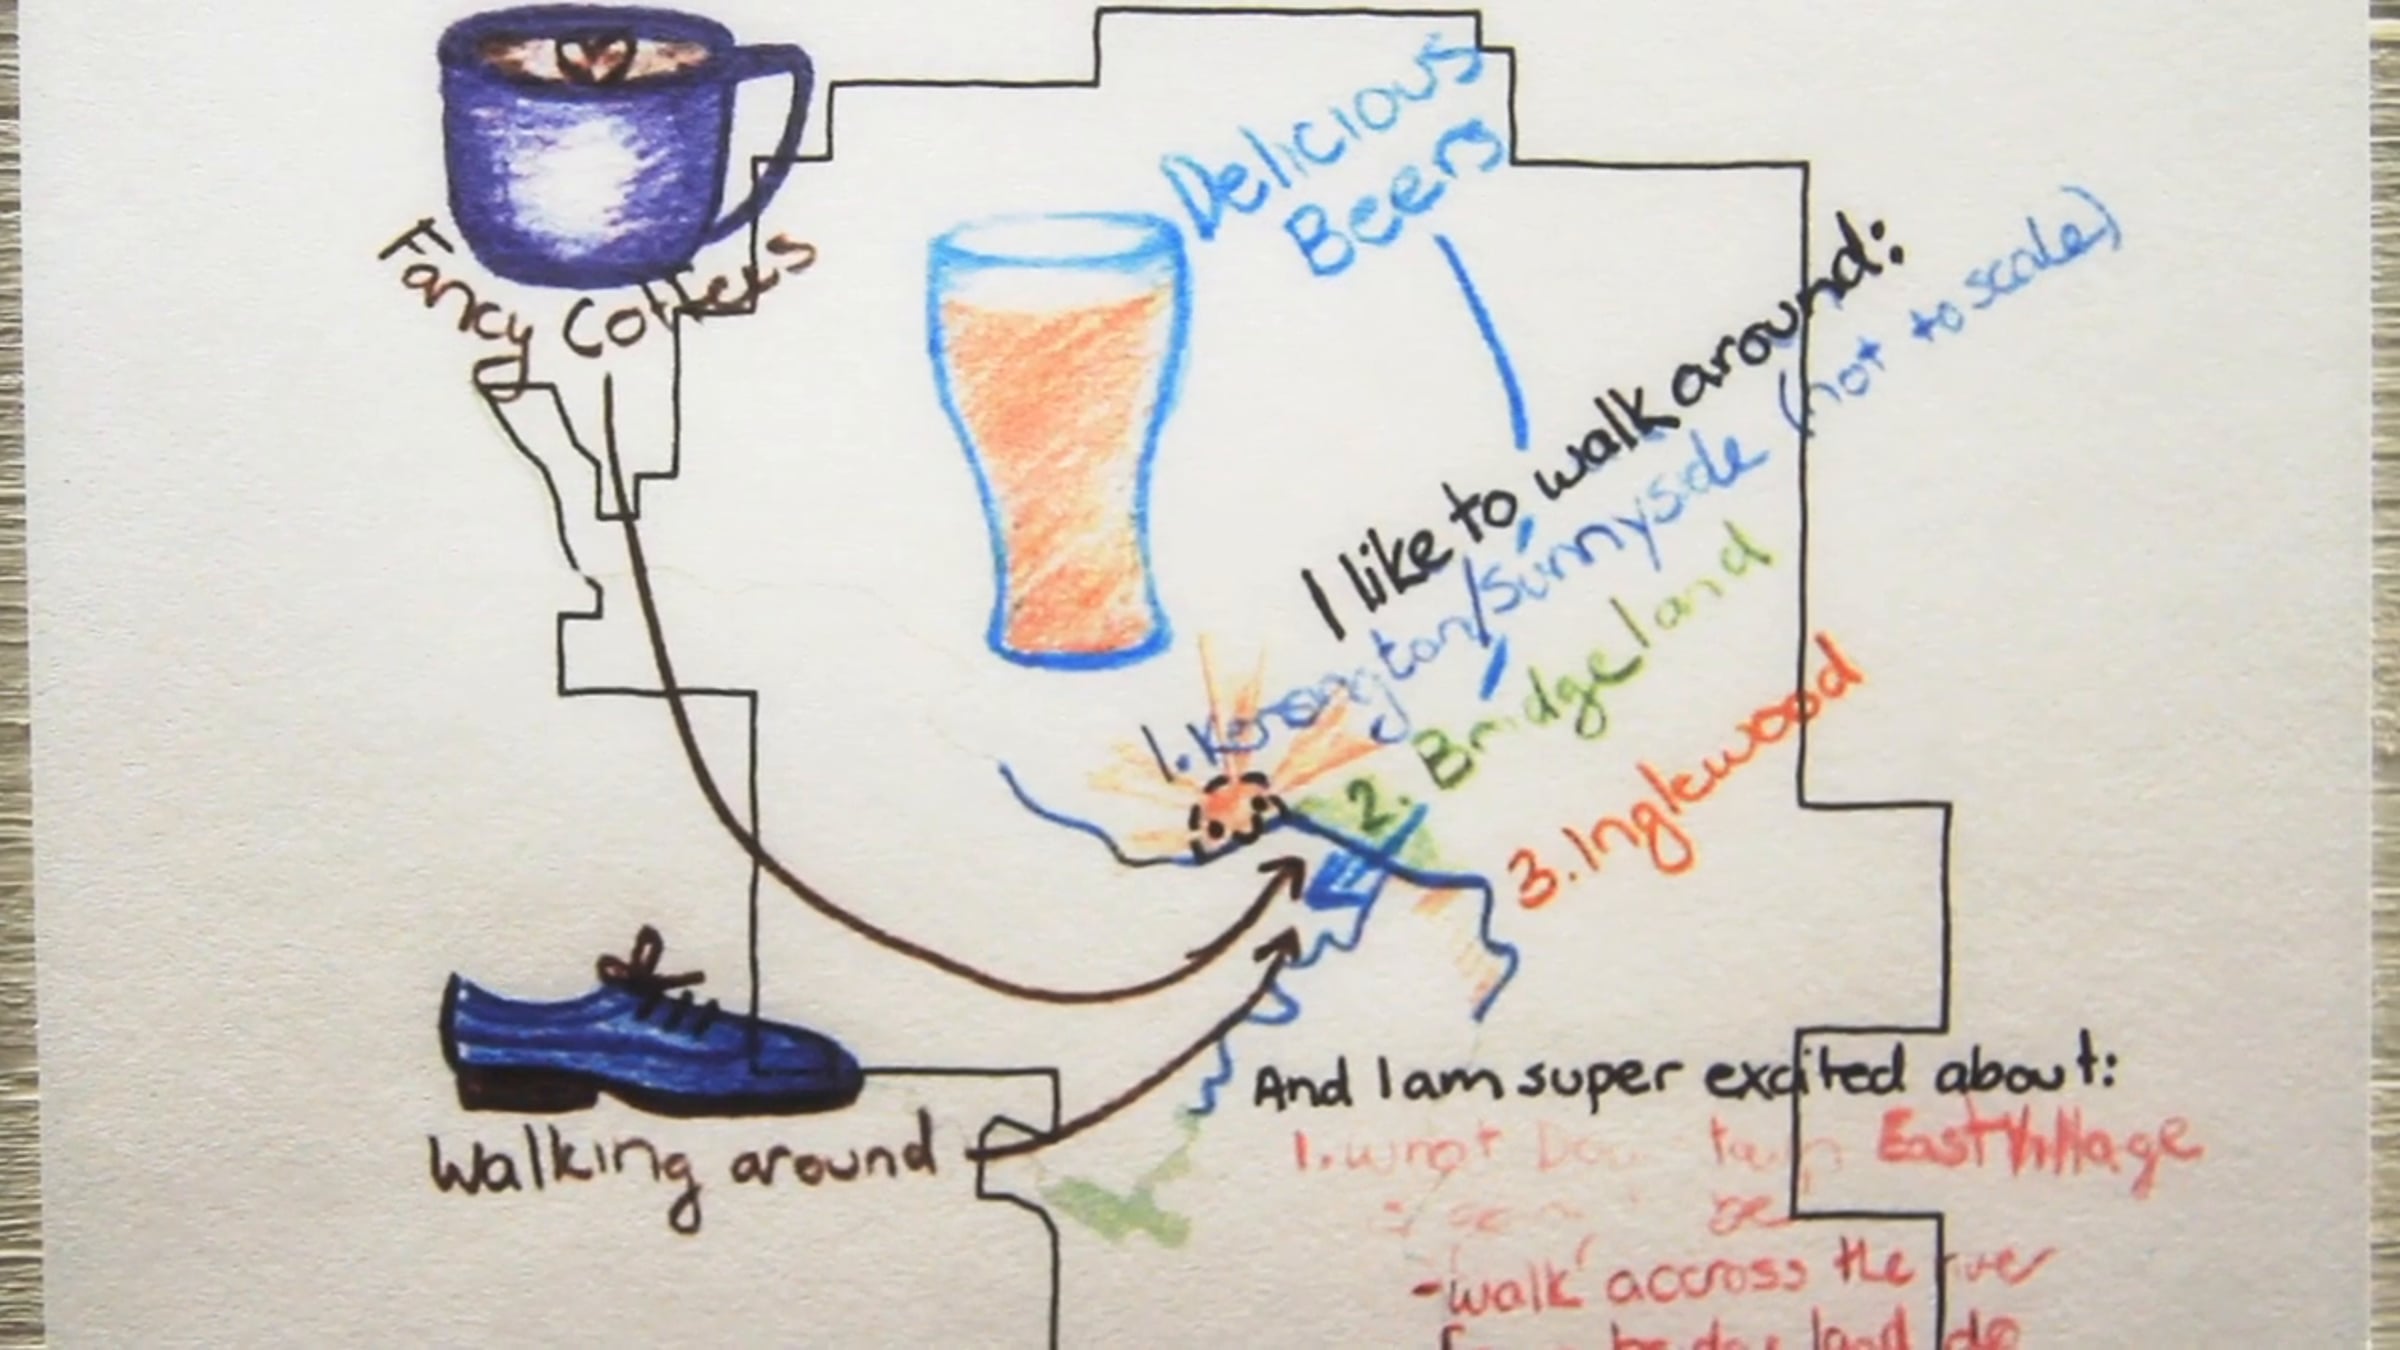 Delicious
Beers
Fancy Coffees
I like to walk around:
1. Kensington/Sunnyside (not to scale)
2. Bridgeland
3. Inglewood
Walking around
And I am super excited about:
1. East Village
-walk accross the river